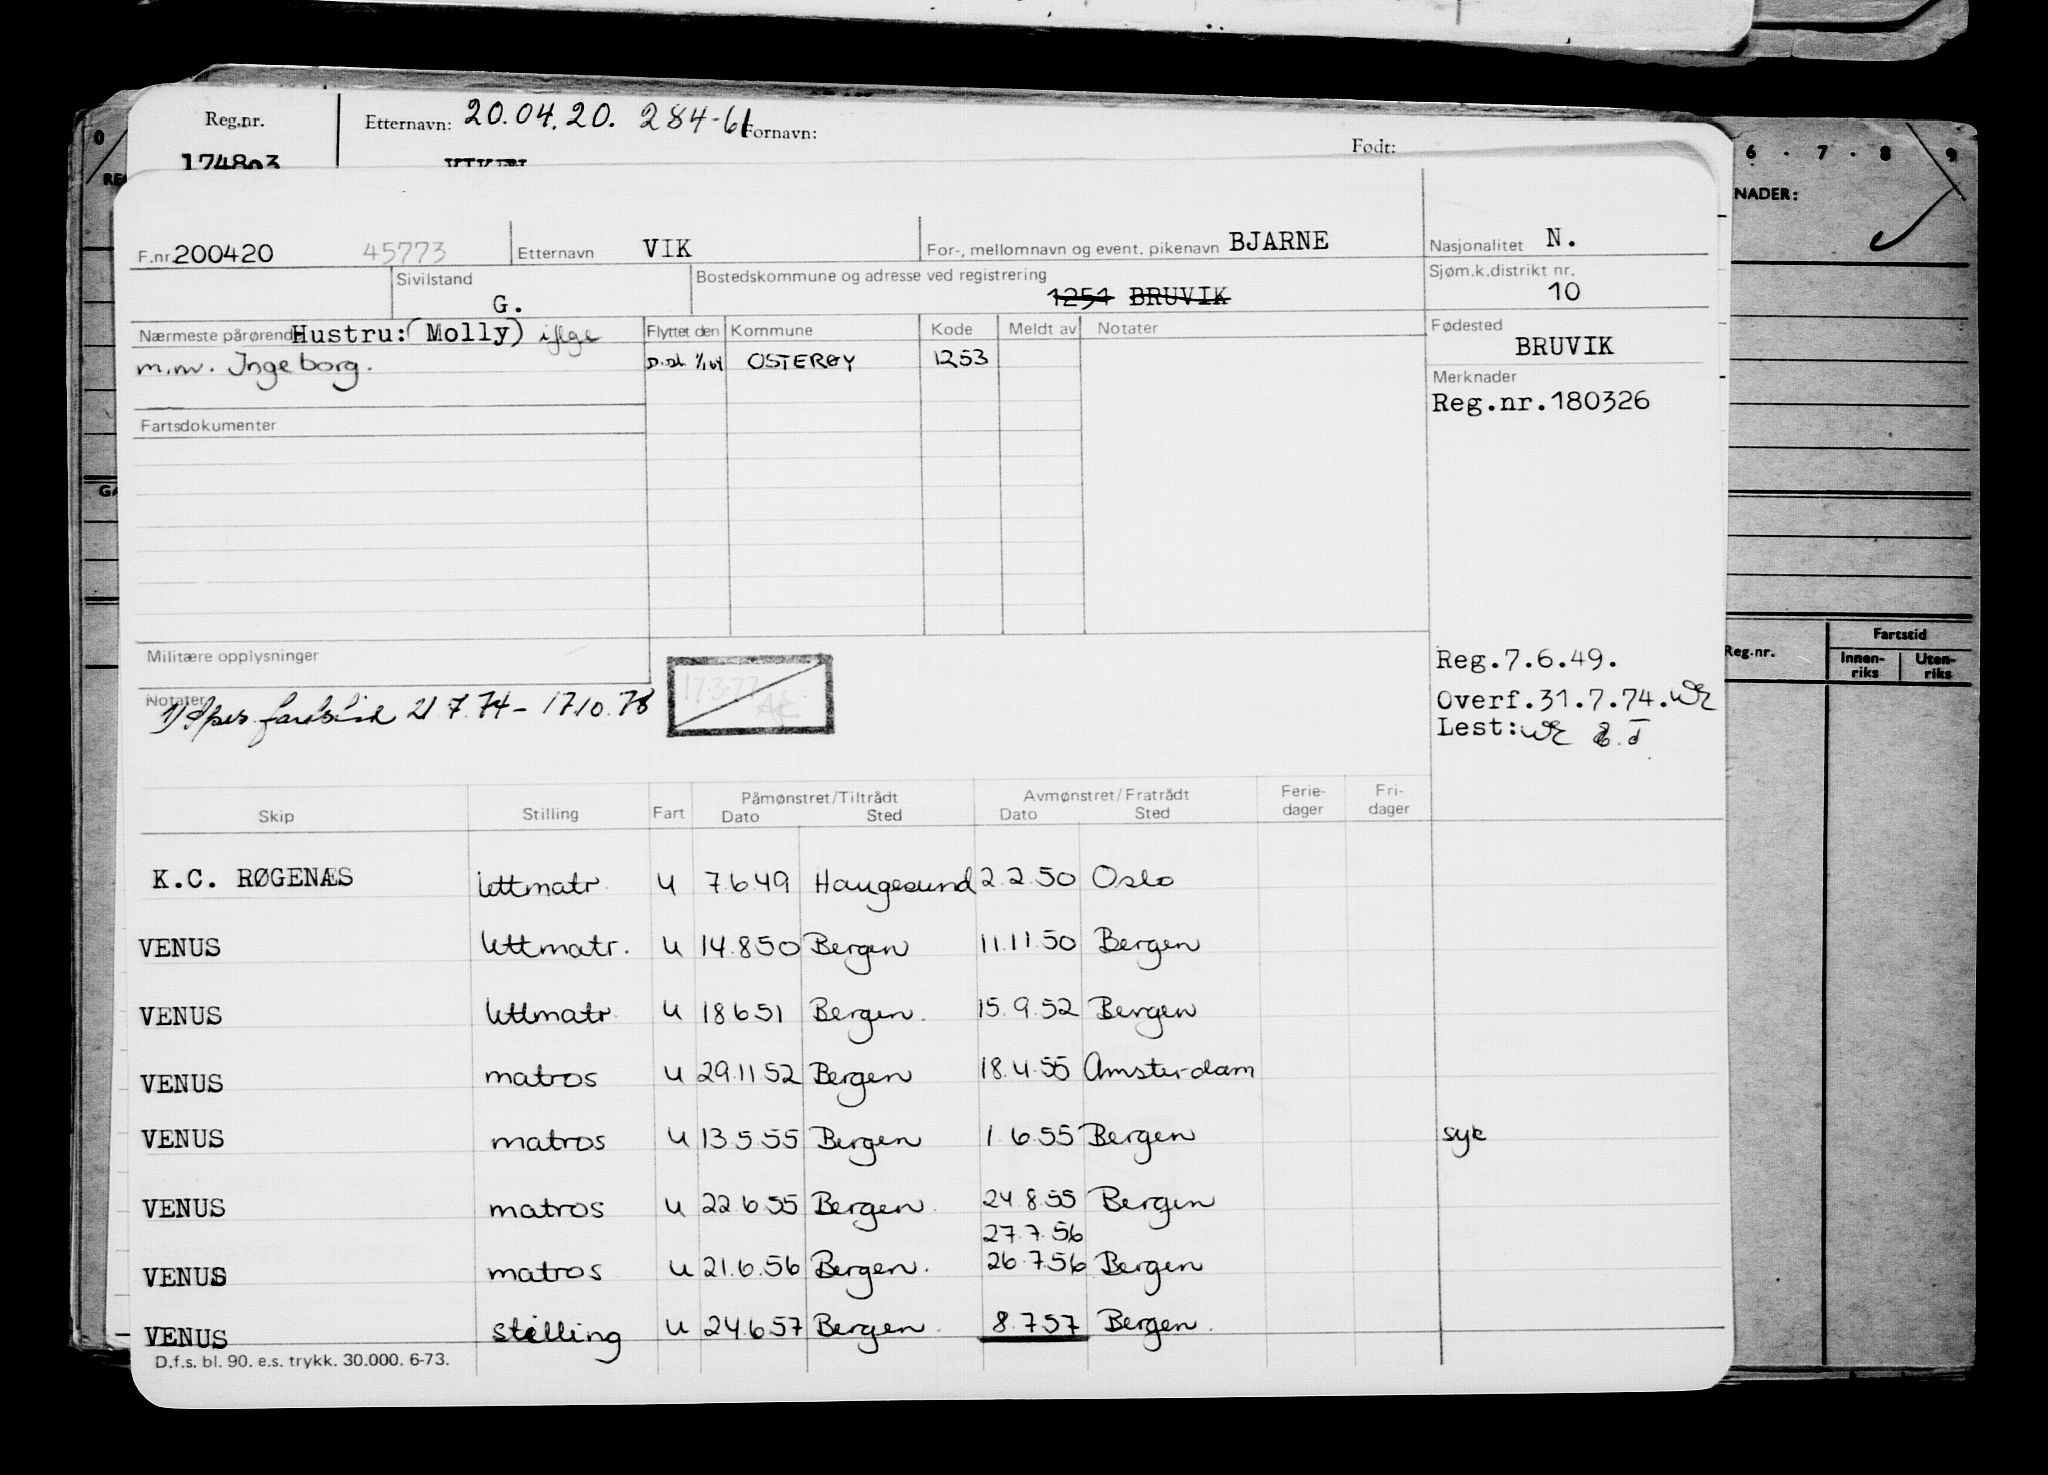 Reg.nr. Etternavn: 20.04.20. 284-61 Fornavn: Født:
6 . 7 . 8 9
NADER:
F.nr. 200420 45773 Etternavn VIK For-, mellomnavn og event. pikenavn BJARNE Nasjonalitet N.
Sivilstand G. Bostedskommune og adresse ved registrering 1251 BRUVIK Sjøm.k.distrikt nr. 10
Nærmeste pårørende Hustru: (Molly) iflge Flyttet den Kommune Kode Meldt av Notater Fødested BRUVIK
m.m. Ingeborg. OSTERØY 1253
Merknader
Reg.nr.180326
Fartsdokumenter
Militære opplysninger
Reg.7.6.49.
Notater 21.7.74 - 17.10.78
17.3.77
Overf.31.7.74.
Lest:
Reg.nr. Fartstid
Innen-riks Uten-riks
Skip Stilling Fart Påmønstret/Tiltrådt Dato Sted Avmønstret/Fratrådt Dato Sted Ferie-dager Fri-dager
K.C. RØGENÆS lettmatr. u 7.6.49 Haugesund 2.2.50 Oslo
VENUS lettmatr. u 14.8.50 Bergen 11.11.50 Bergen
VENUS lettmatr. u 18.6.51 Bergen. 15.9.52 Bergen
VENUS matros u 29.11.52 Bergen 18.4.55 Amsterdam
VENUS matros u 13.5.55 Bergen 1.6.55 Bergen syk
VENUS matros u 22.6.55 Bergen. 24.8.55 Bergen
27.7.56
VENUS matros u 21.6.56 Bergen. 26.7.56 Bergen
VENUS stilling u 24.6.57 Bergen. 8.7.57 Bergen.
D.f.s. bl. 90. e.s. trykk. 30.000. 6-73.